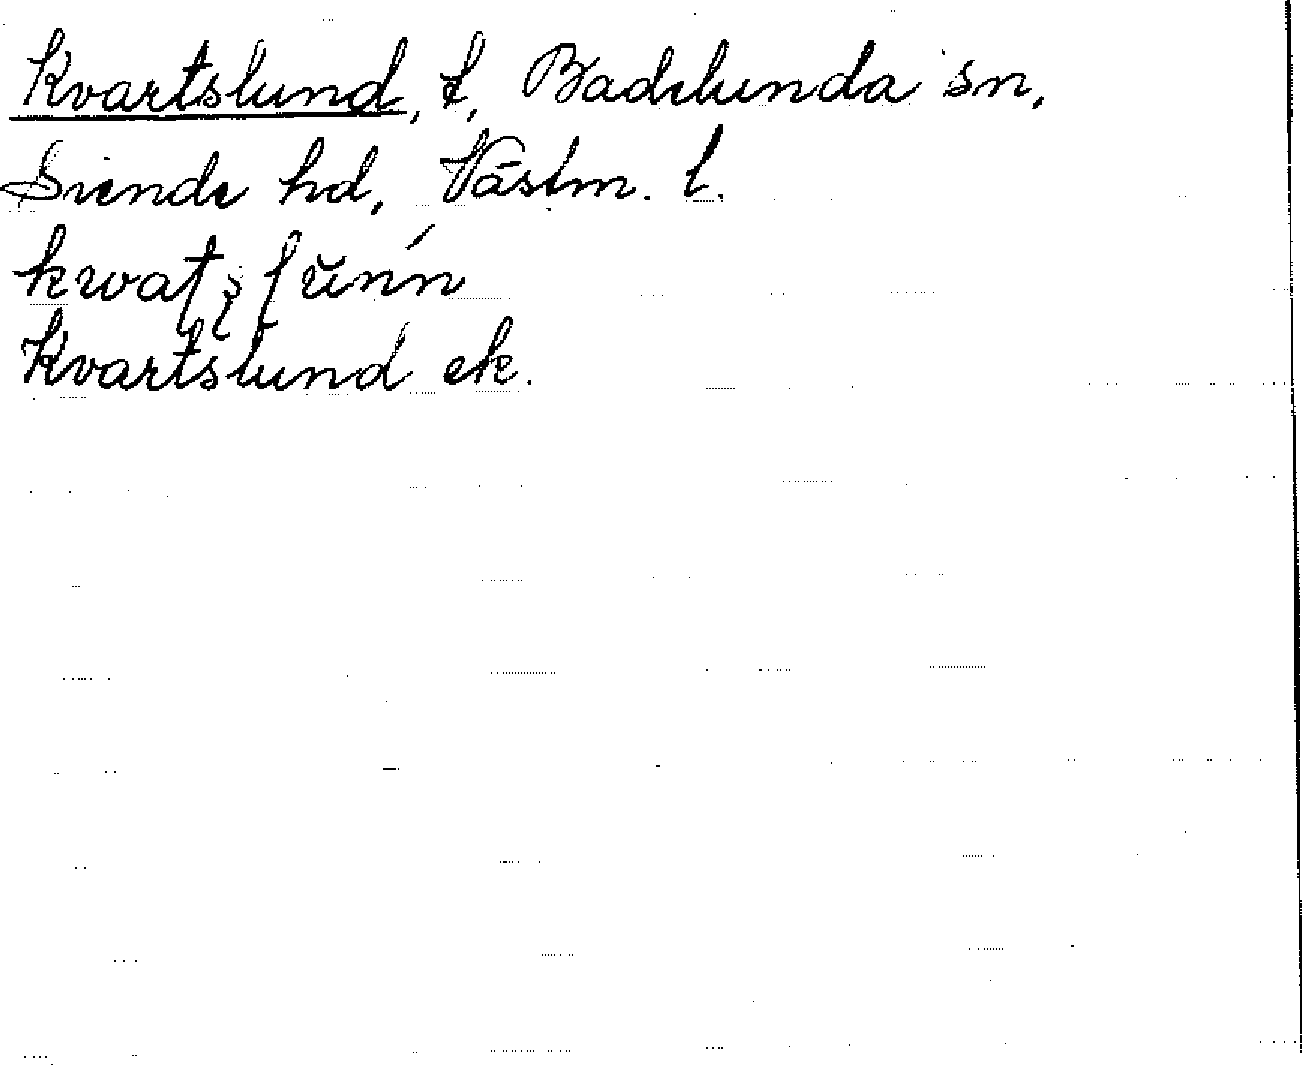 Kvartslund, t, Badelunda sn,
Siende hd, Västm. l.
Kvartslund ek.